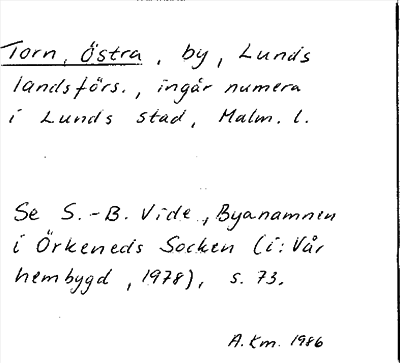 Torn, Östra, by, Lunds
landsförs., ingår numera
i Lunds stad, Malm. l.
Se S.-B. Vide, Byanamnen
i Örkeneds Socken (i: Vår
hembygd, 1978), s. 73.
A.Km. 1986